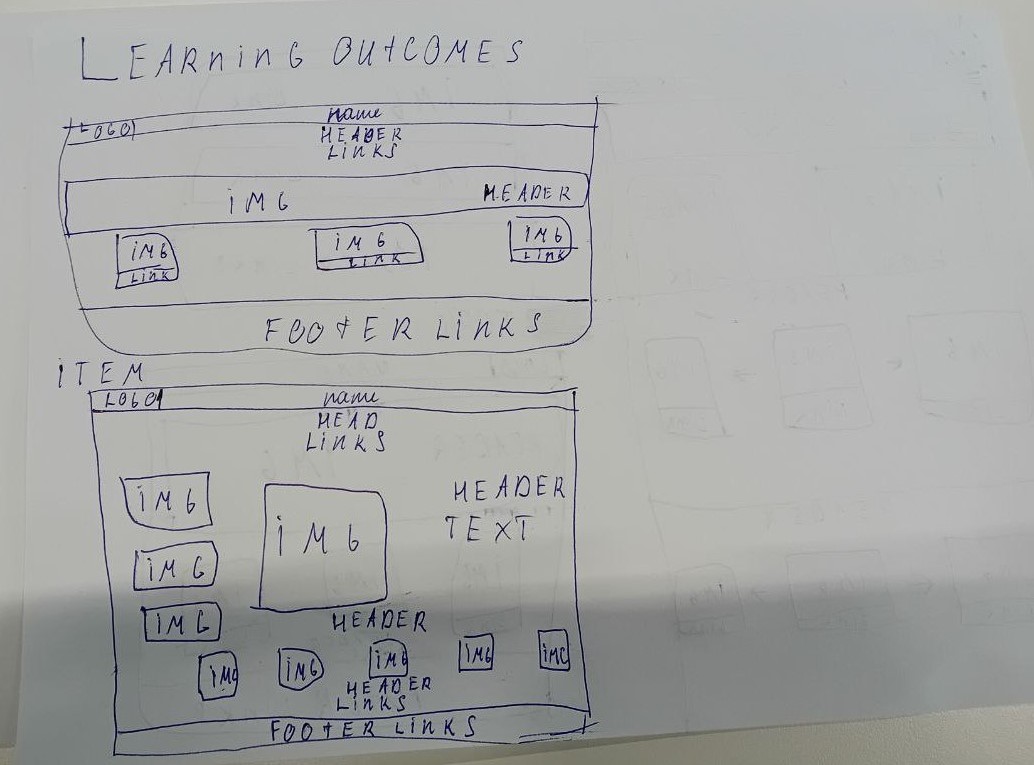 LEARninG OUtCOMES
name
LOGO
HEADER
LinKS
iMG HEADER
iMG iMG iMG
LinK LinK LinK
FOOtER LinKS
iTEM
LOGO name
HEAD
LinKS
iMG
HEADER
TEXT
iMG
iMG
iMG
HEADER
iMG iMG iMG iMG iMG
HEADER
LinKS
FOOtER LinKS